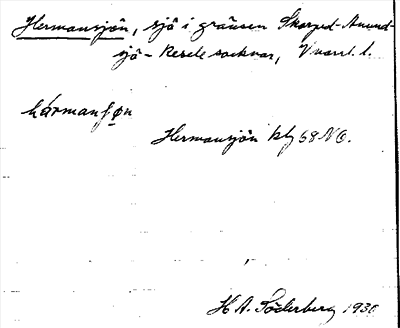 Hermansjön, sjö i gränsen Skorped-Anund-
sjö - Resele socknar, V narrl. l.
hármanʃøn
Hermansjön kbl 68 NO.
H A. Söderberg 1930